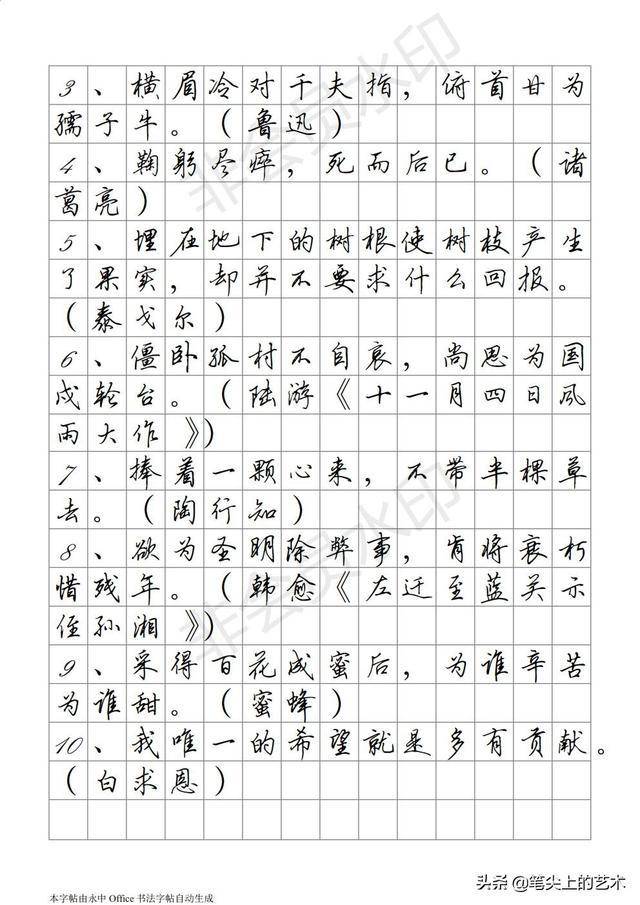 3、横眉冷对千夫指，俯首甘为
孺子牛。（鲁迅）
4、鞠躬尽瘁，死而后已。（诸
葛亮）
5、埋在地下的树根使树枝产生
了果实，却并不要求什么回报。
（泰戈尔）
6、僵卧孤村不自哀，尚思为国
戍轮台。（陆游《十一月四日风
雨大作》）
7、捧着一颗心来，不带半棵草
去。（陶行知）
8、欲为圣明除弊事，肯将衰朽
惜残年。（韩愈《左迁至蓝关示
侄孙湘》）
9、采得百花成蜜后，为谁辛苦
为谁甜。（蜜蜂）
10、我唯一的希望就是多有贡献。
（白求恩）
本字帖由永中 Office 书法字帖自动生成
头条 @笔尖上的艺术
非会员水印
非会员水印